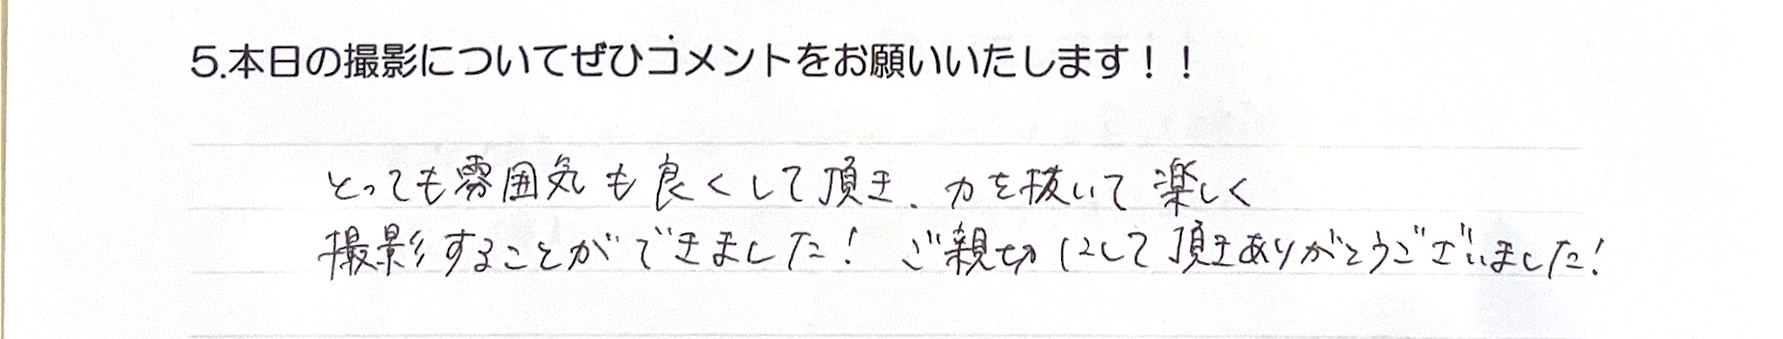 5.本日の撮影についてぜひコメントをお願いいたします！！
とっても雰囲気も良くして頂き、力を抜いて楽しく
撮影することができました！ご親切にして頂きありがとうございました！